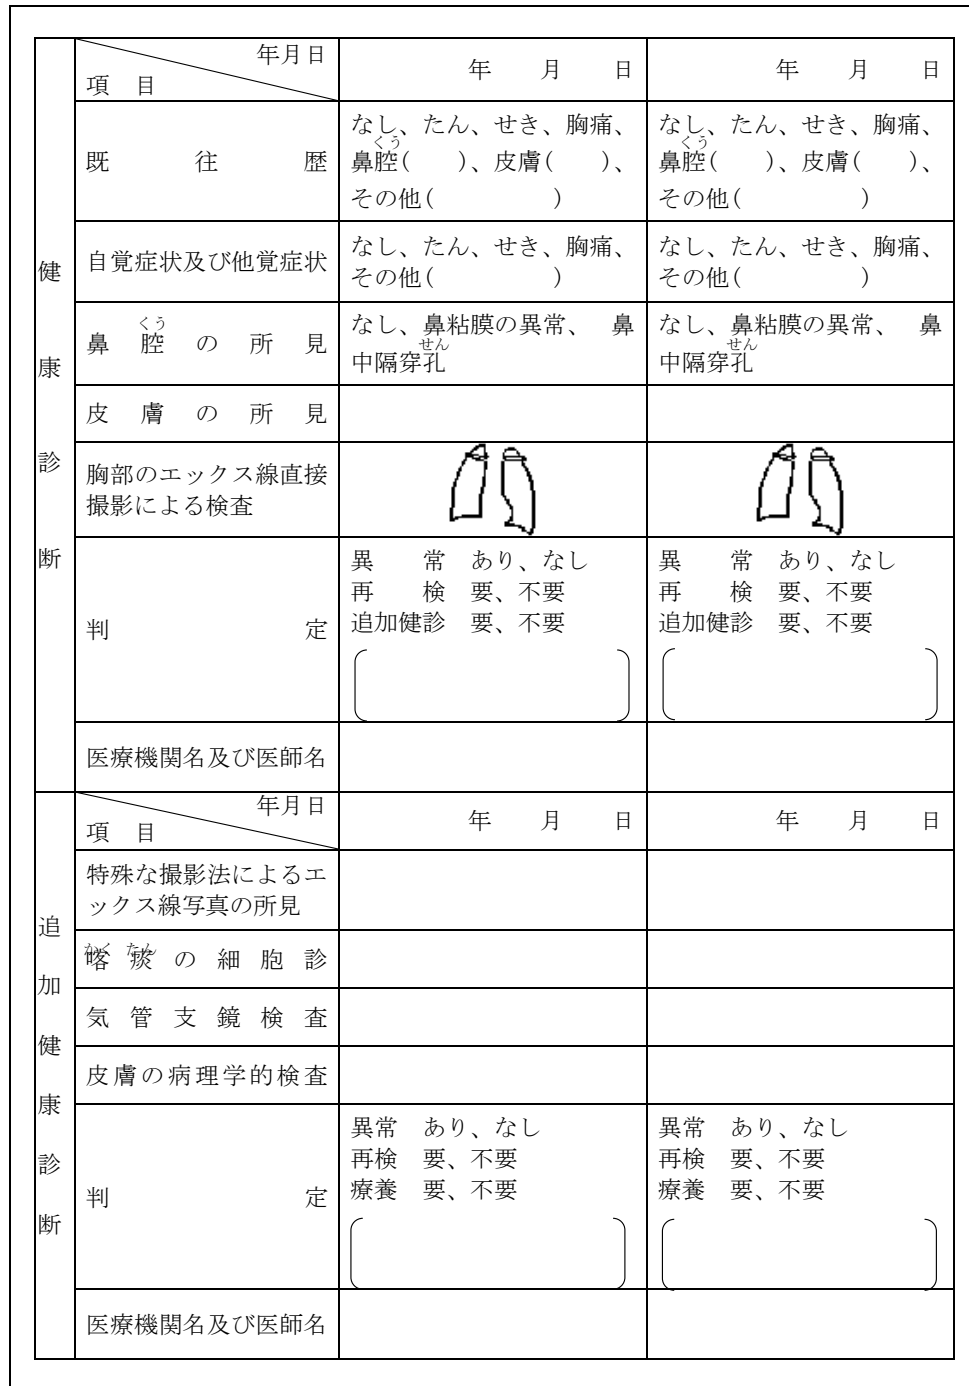 健康診断
年月日
項　目
年　月　日
年　月　日
既往歴
なし、たん、せき、胸痛、
鼻腔(くう)(　　)、皮膚(　　)、
その他(　　　　　)
なし、たん、せき、胸痛、
鼻腔(くう)(　　)、皮膚(　　)、
その他(　　　　　)
自覚症状及び他覚症状
なし、たん、せき、胸痛、
その他(　　　　　)
なし、たん、せき、胸痛、
その他(　　　　　)
鼻腔(くう)の所見
なし、鼻粘膜の異常、　鼻
中隔穿(せん)孔
なし、鼻粘膜の異常、　鼻
中隔穿(せん)孔
皮膚の所見
胸部のエックス線直接
撮影による検査
判定
異　　常　あり、なし
再　　検　要、不要
追加健診　要、不要
異　　常　あり、なし
再　　検　要、不要
追加健診　要、不要
医療機関名及び医師名
追加健康診断
年月日
項　目
年　月　日
年　月　日
特殊な撮影法によるエ
ックス線写真の所見
喀(かく)痰(たん)の細胞診
気管支鏡検査
皮膚の病理学的検査
判定
異常　あり、なし
再検　要、不要
療養　要、不要
異常　あり、なし
再検　要、不要
療養　要、不要
医療機関名及び医師名